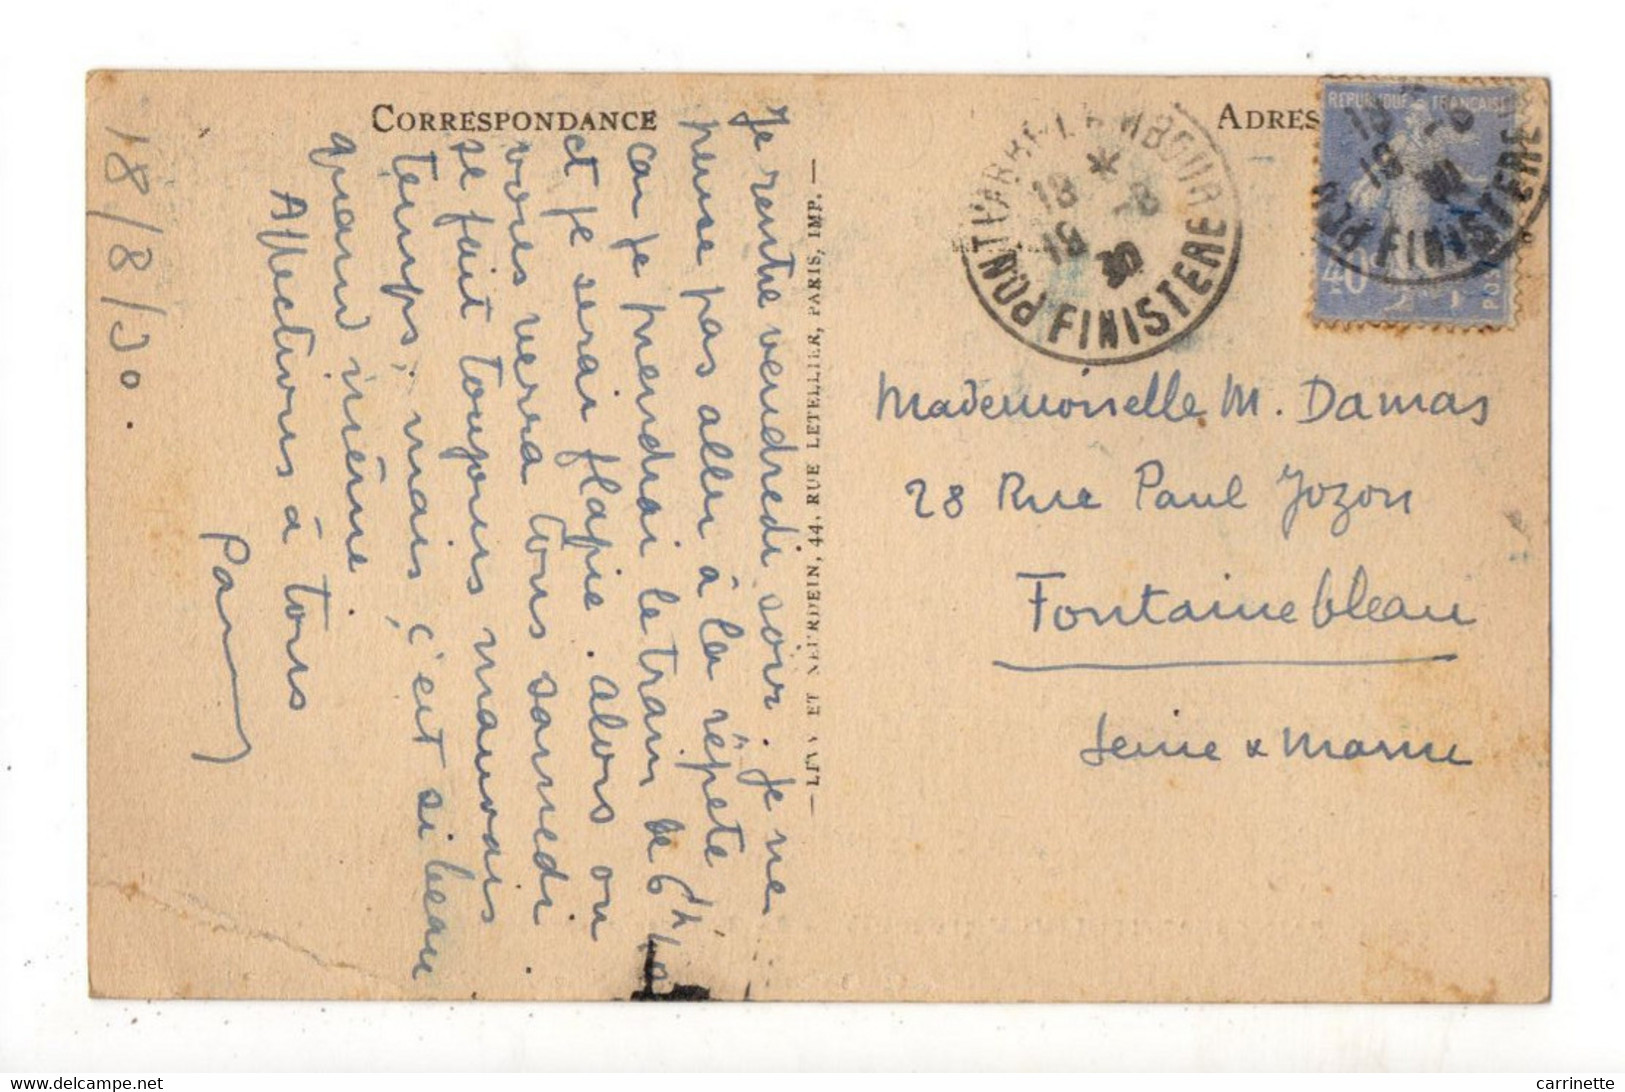 CORRESPONDANCE
18/8/30.
Je rentre vendredi soir. Je ne
pense pas aller à la "répète"
car je prendrai le train de 6h 10
et je serai flapie. alors on
vous verra tous samedi.
se fait toujours mauvais
temps, mais c'est si beau
quand même.
Affections à tous
ADRES
PONT L'ABBE-LAMBOUR
FINISTERE
18 -8
19 30
REPUBLIQUE FRANÇAISE
40
FINISTERE
Mademoiselle M. Damas
28 Rue Paul Jozon
Fontainebleau
Seine & Marne
— LEVY ET NEURDEIN, 44, RUE LETELLIER, PARIS, IMP. —
carrinette